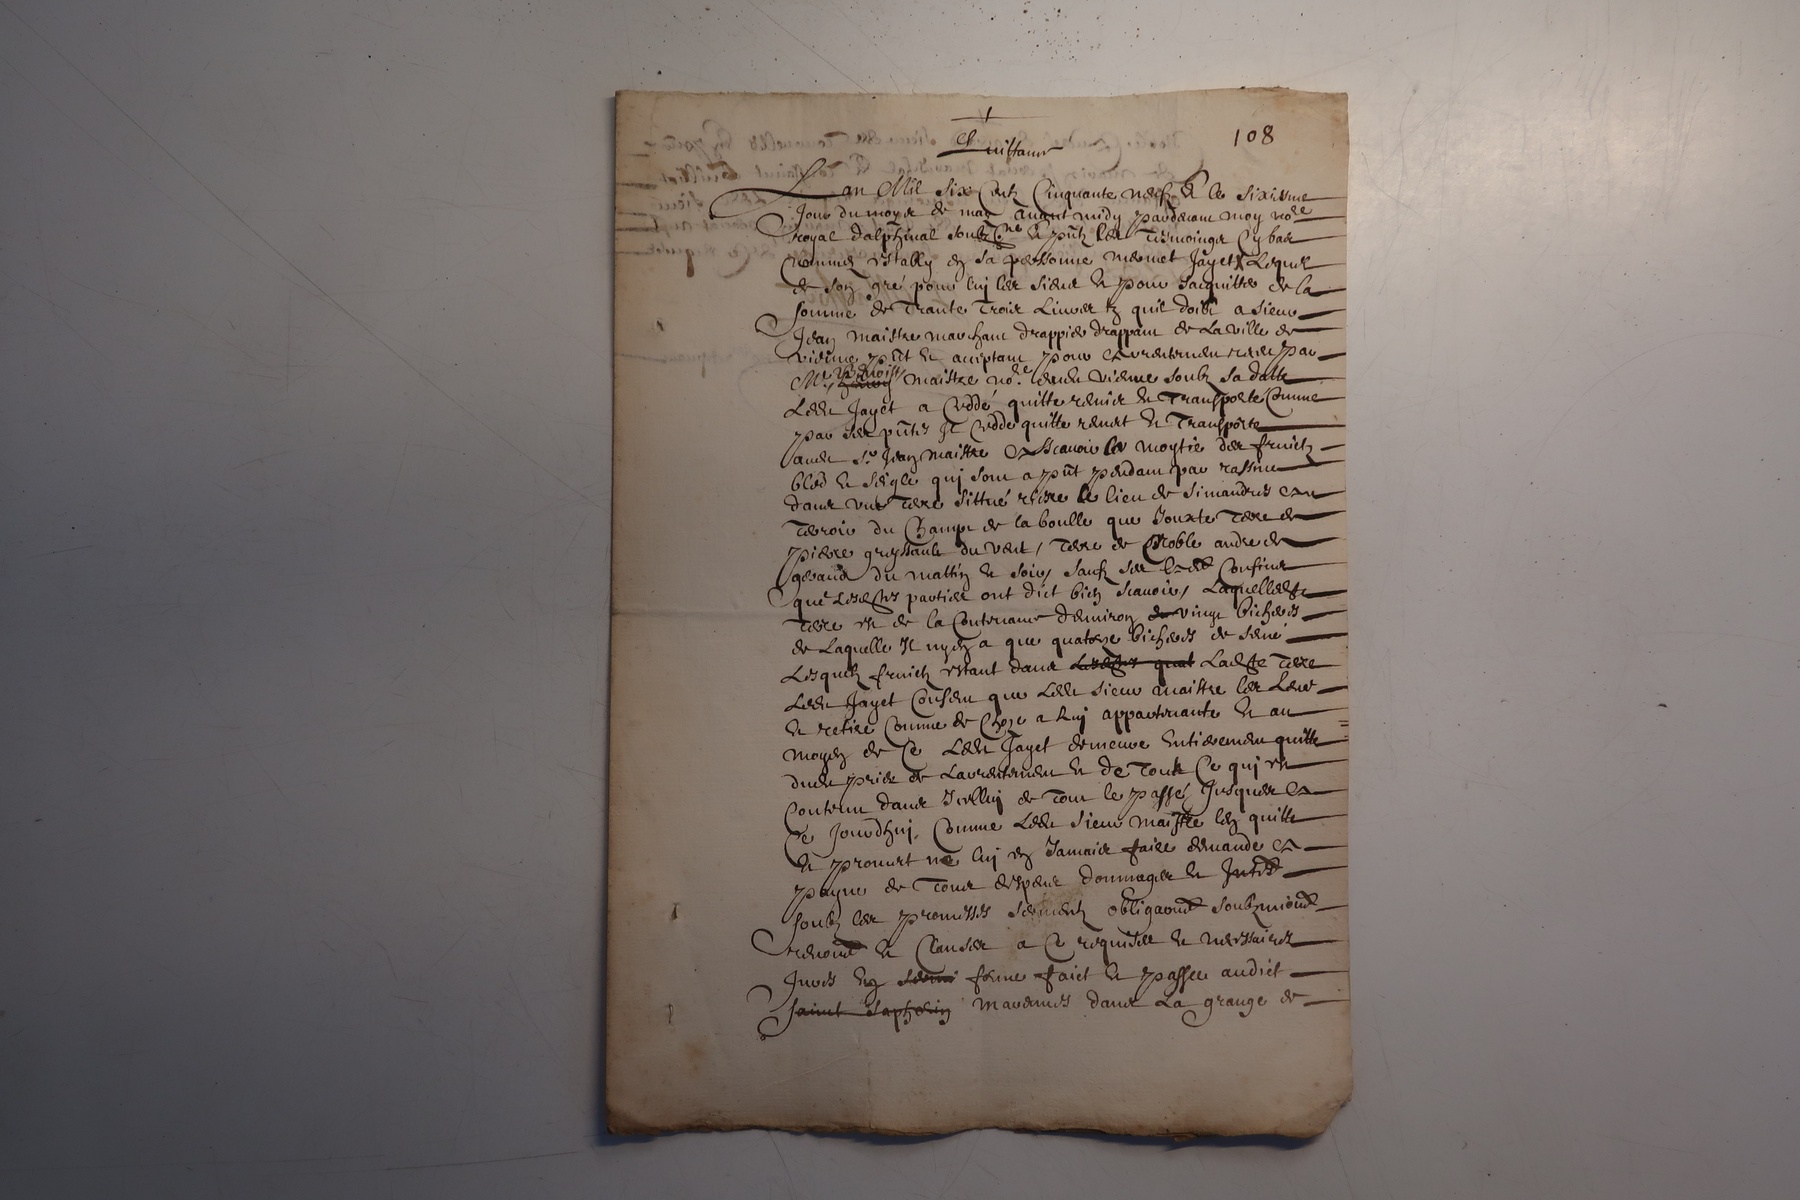 108
Quittance
L an Mil six Centz Cinquante neufz & le sixiesme
Jour du moys de may avant midy pardevant moy no.re
royal dalphinal soub.ne & pntz les Tesmoingz Cy bas
nommez estably en sa personne mermet Jayet Lequel
de son gré pour luy les siens & pour sacquitter de la
somme de Trante Trois Livres tz quil doibt a sieur
Jean maistre marchant drappier drappant de La ville de
vienne pnt & acceptant pour arrentement receu par
Me maistre no.re dudt vienne soubz sa datte
Ledt Jayet a Ceddé quitte remis & Transporté Comme
par ses pntes Il Cedde quitte remet & Transporte
audt Sr Jean maistre A Scavoir la moytié des fruictz
bled & seigle qui sont a pnt pendant par rassine
dans une Terre sittué riere le lieu de simandres au
Terroir du Champt de la boulle que Jouxte Terre de
pierre du vent, Terre de Noble andre de
du mattin & soir, saufz ses Confins
que Lesdites parties ont dict bien scavoir, Laquelledte
Terre est de la Contenance denviron de vingt bicherés
de Laquelle Il nyen a que quatorze bicherés de semé
Lesquelz fruictz estant dans Lesdites quat Ladte Terre
Ledt Jayet Consent que Ledt sieur maistre les Leve
& retire Comme de Chose a Luy appartenante & au
moyen de Ce Ledt Jayet demeure Entierement quitte
dudt pris de Larrentement & de Tout Ce qui est
Contenu dans Icelluy de Tout le passé Jusques A
Ce Jourdhuy, Comme Ledt sieur maistre len quitte
& promet ne luy en Jamais faire demande A
payne de Tous despens dommages &
soubz les promesses sermentz
& Clauses a Ce requises & necessaires
en forme faict & passé audict
saint saphorin marennes dans La grange de